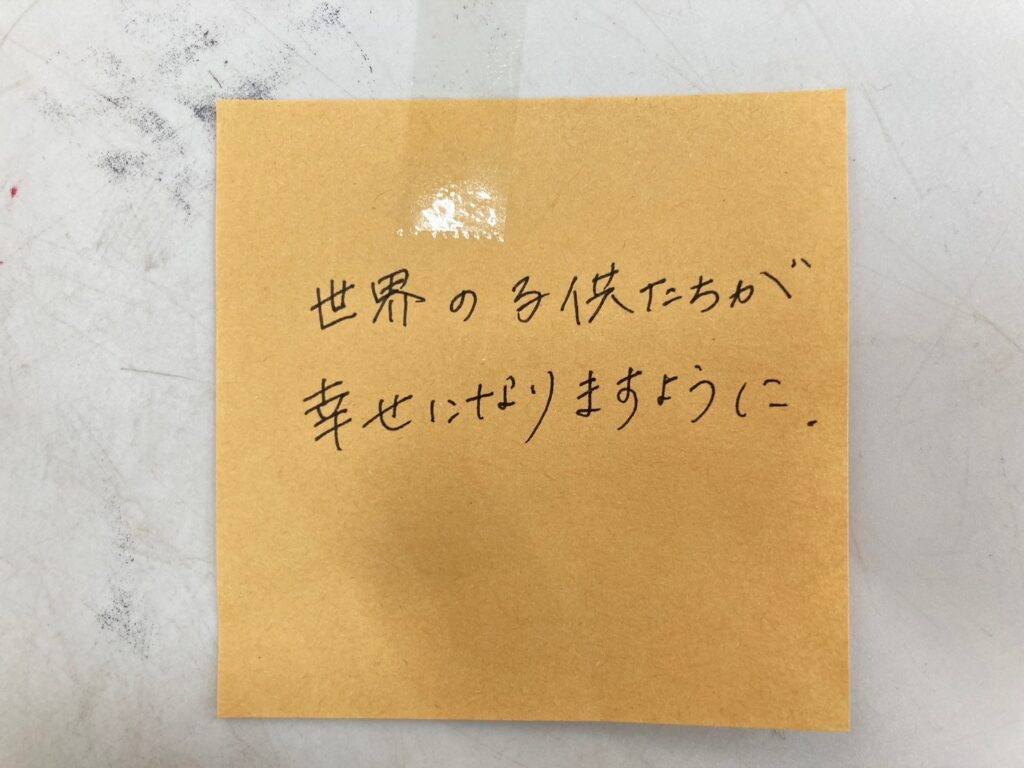 世界の子供たちが
幸せになりますように.